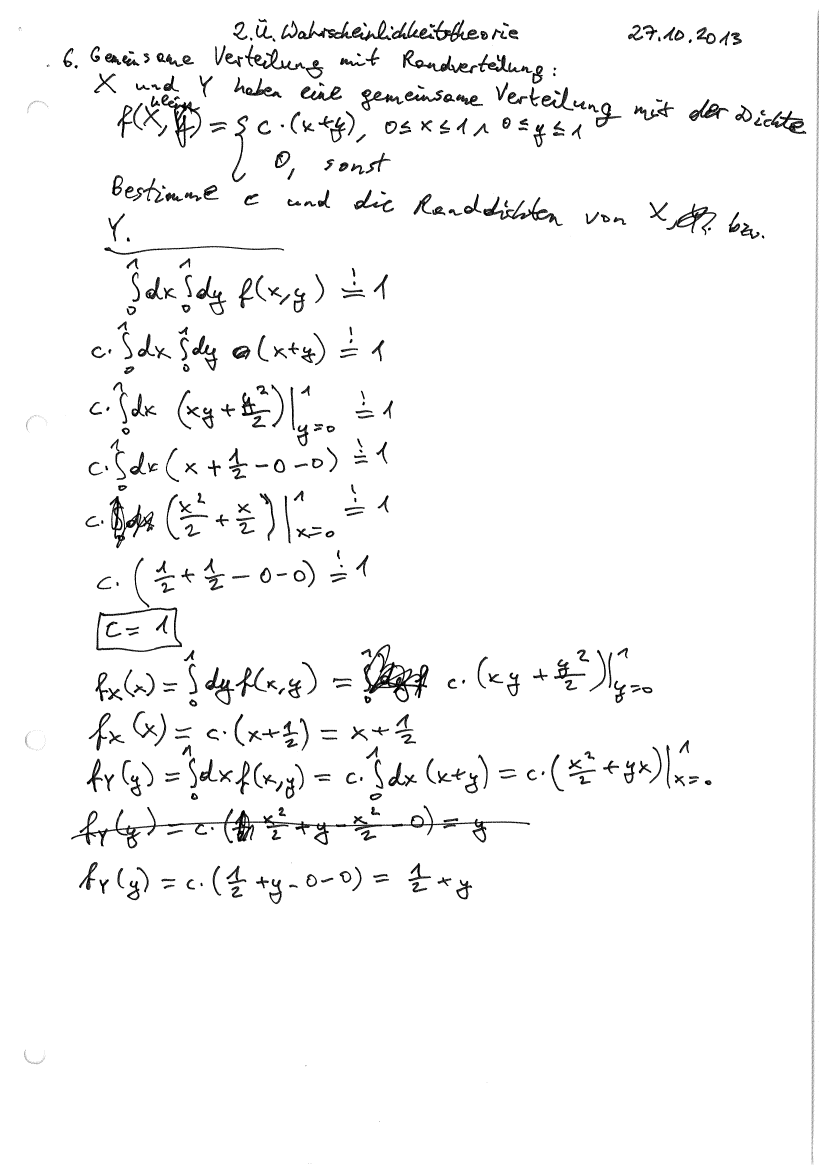 2. Ü. Wahrscheinlichkeitstheorie 27.10.2013
6. Gemeinsame Verteilung mit Randverteilung:
X und Y haben eine gemeinsame Verteilung mit der Dichte
klein
f(X, y) = { c·(x+y), 0≤x≤1 ∧ 0≤y≤1
0, sonst
Bestimme c und die Randdichten von X, bzw.
Y.
∫₀¹dx ∫₀¹dy f(x,y) =! 1
c·∫₀¹dx ∫₀¹dy (x+y) =! 1
c·∫₀¹dx (xy + y²/2)|¹_{y=0} =! 1
c·∫₀¹dx (x + 1/2 - 0 - 0) =! 1
c· (x²/2 + x/2)|¹_{x=0} =! 1
c· (1/2 + 1/2 - 0 - 0) =! 1
c = 1
f_X(x) = ∫₀¹dy f(x,y) = c·(xy + y²/2)|¹_{y=0}
f_X(x) = c·(x + 1/2) = x + 1/2
f_Y(y) = ∫₀¹dx f(x,y) = c·∫₀¹dx (x+y) = c·(x²/2 + yx)|¹_{x=0}
f_Y(y) = c·( x²/2 + y - x²/2 - 0) = y
f_Y(y) = c·(1/2 + y - 0 - 0) = 1/2 + y